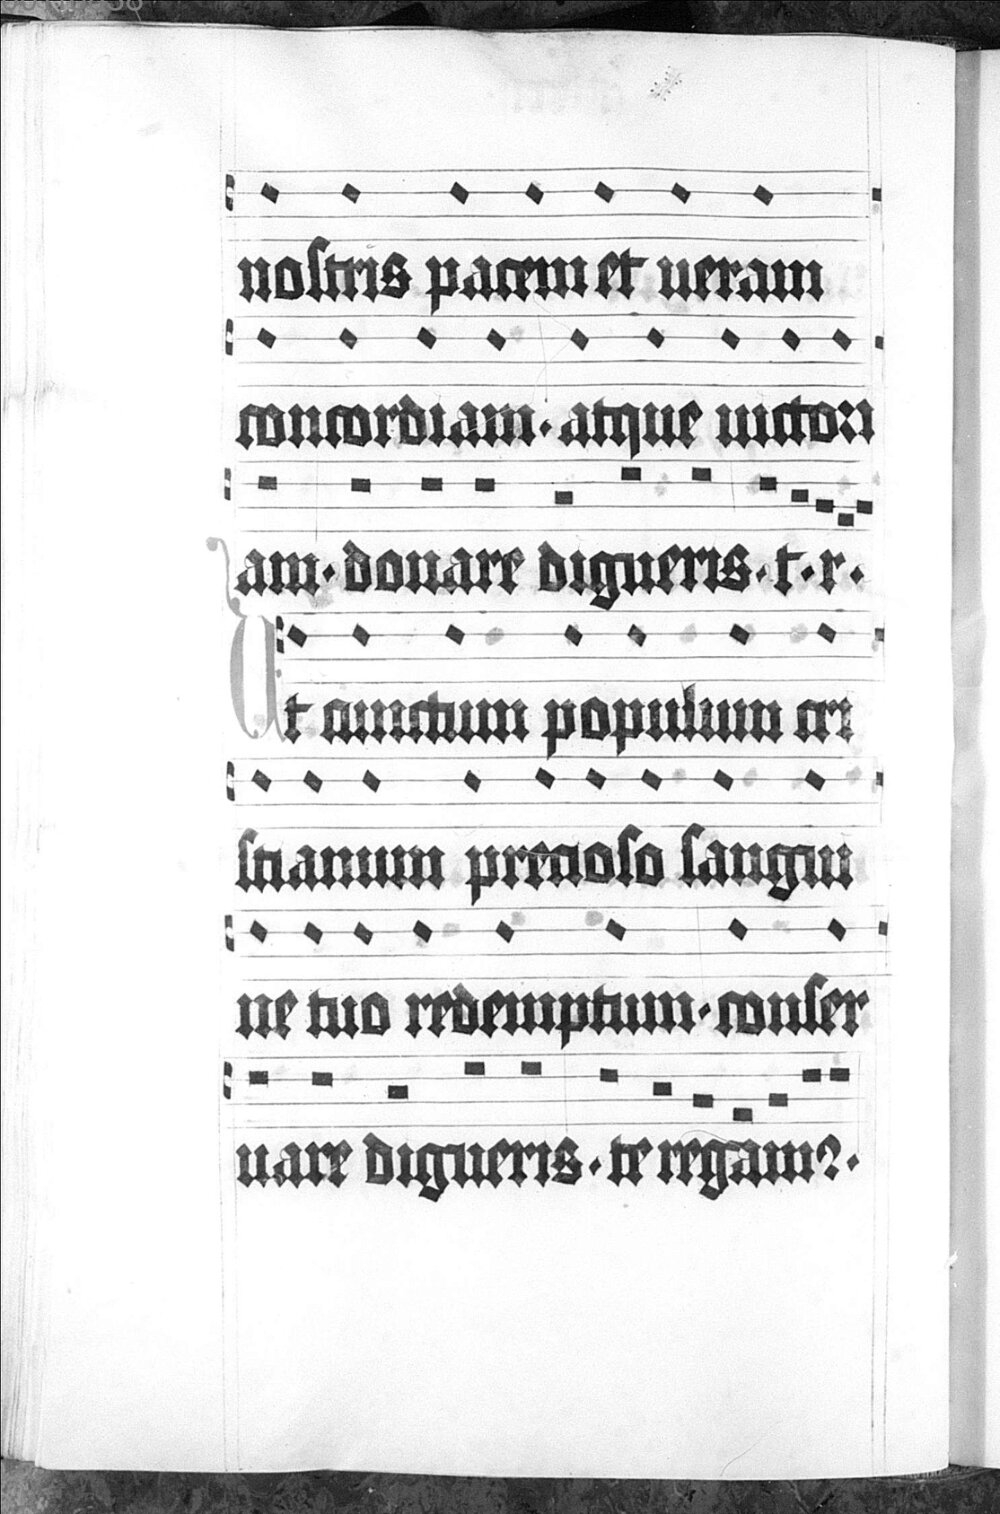 nostris pacem et ueram
concordiam · atque uictori
am · donare digneris · t · r ·
Ut cunctum populum cri
stianum precioso sangui
ne tuo redemptum · conser
uare digneris · te rogam? ·